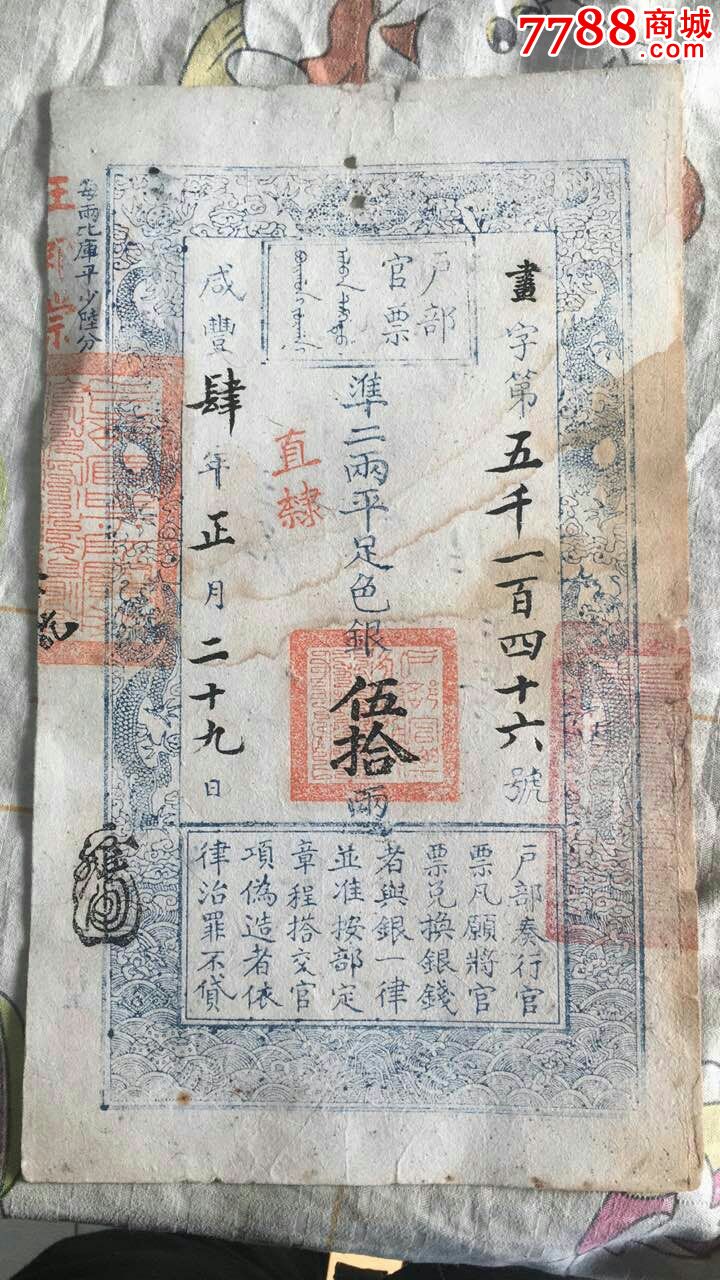 7788商城
.com
户部
官票
畫字第五千一百四十六號
準二兩平足色銀伍拾兩
直隸
咸豐肆年正月二十九日
每兩比庫平少陸分
户部奏行官
票凡願將官
票兑換銀錢
者與銀一律
並准按部定
章程搭交官
項偽造者依
律治罪不貸